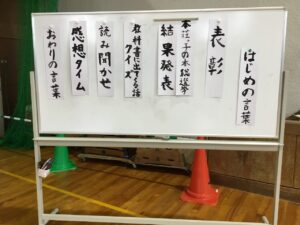 はじめの言葉
表彰
本荘っ子の本総選挙
結果発表
教科書に出てくる話
クイズ
読み聞かせ
感想タイム
おわりの言葉